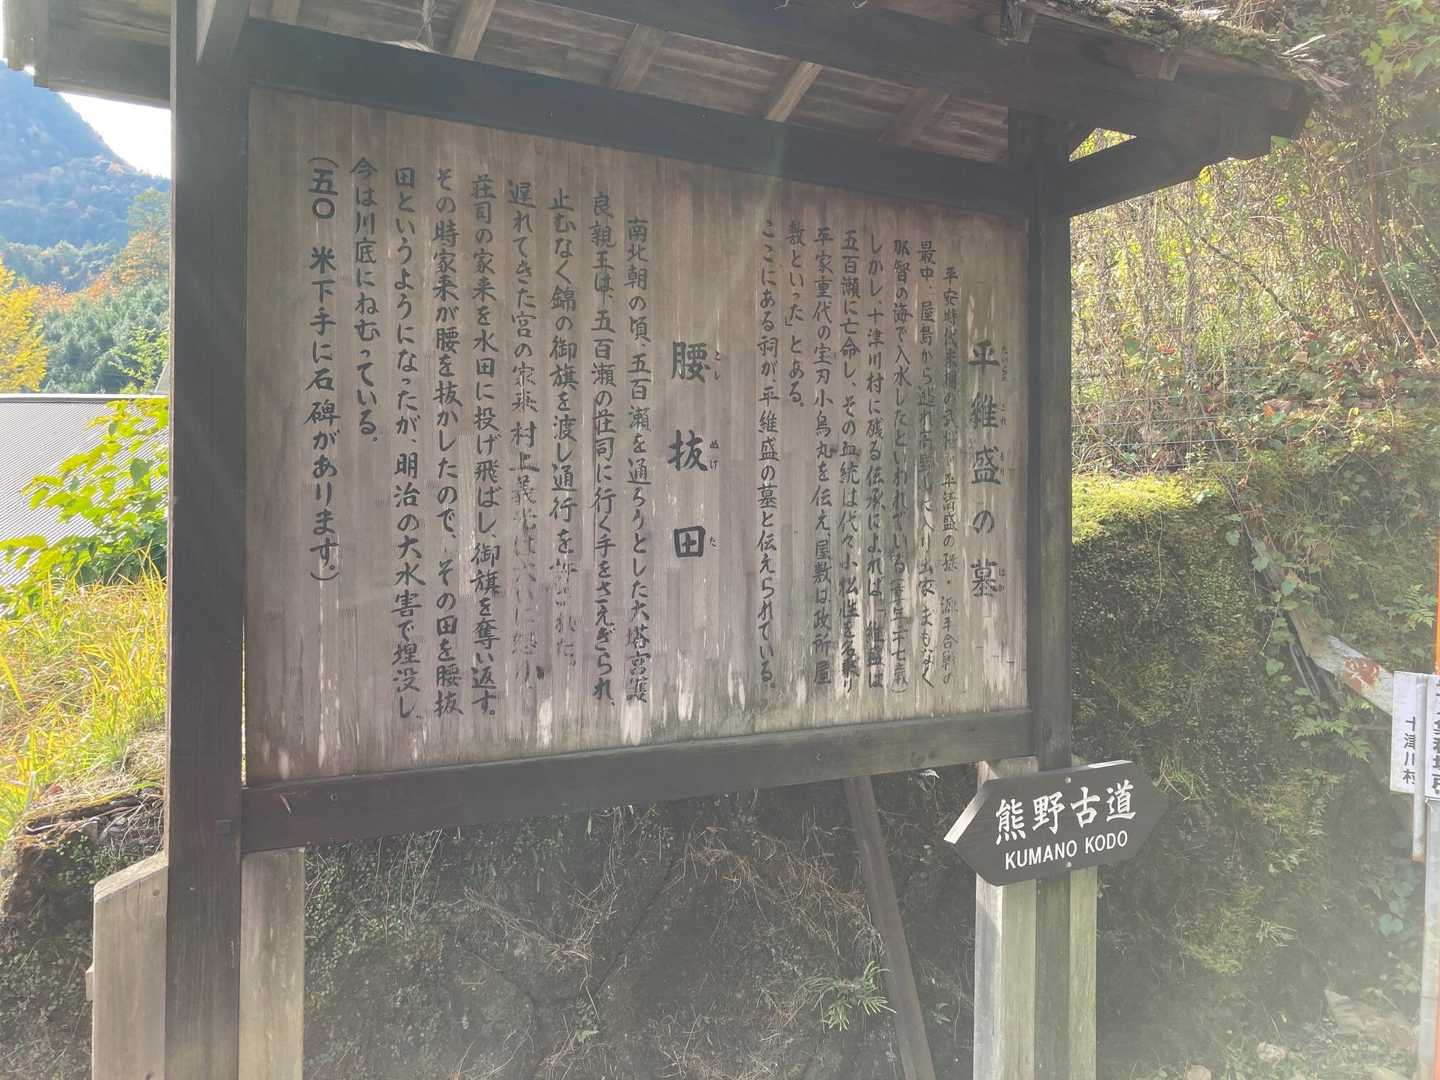 平維盛の墓
たいらのこれもりのはか
平安時代末期の武将、平清盛の孫・源平合戦の
最中、屋島から逃れ高野山に入り出家、まもなく
那智の海で入水したといわれている(享年二十七歳)
しかし、十津川村に残る伝承によれば、「維盛は
五百瀬に亡命し、その血統は代々小松姓を名乗り
平家重代の宝刃小烏丸を伝え、屋敷は政所屋
敷といった」とある。
ここにある祠が、平維盛の墓と伝えられている。
腰抜田
こしぬけた
南北朝の頃、五百瀬を通ろうとした大塔宮護
良親王は、五百瀬の荘司に行く手をさえぎられ、
止むなく錦の御旗を渡し通行を許された。
遅れてきた宮の家来村上義光は大いに怒り、
荘司の家来を水田に投げ飛ばし、御旗を奪い返す。
その時家来が腰を抜かしたので、その田を腰抜
田というようになったが、明治の大水害で埋没し、
今は川底にねむっている。
(五〇米下手に石碑があります。)
熊野古道
KUMANO KODO
十津川村